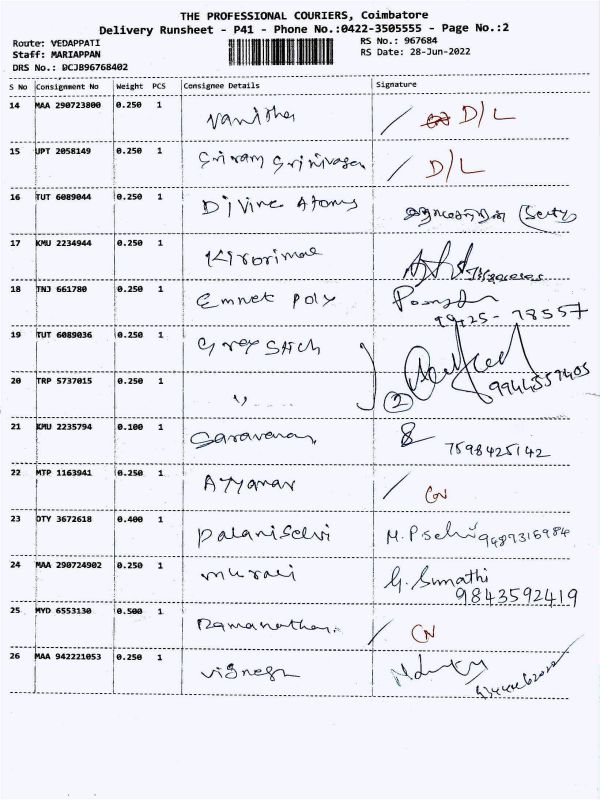 THE PROFESSIONAL COURIERS, Coimbatore
Delivery Runsheet - P41 - Phone No.:0422-3505555 - Page No.:2
Route: VEDAPPATI RS No.: 967684
Staff: MARIAPPAN RS Date: 28-Jun-2022
DRS No.: DCJB96768402
S No Consignment No Weight PCS Consignee Details Signature
14 MAA 290723800 0.250 1 Vanitha / D/L
15 UPT 2058149 0.250 1 Sriram Srinivasan / D/L
16 TUT 6089044 0.250 1 Divine Atoms
17 KMU 2234944 0.250 1
18 TNJ 661780 0.250 1 Emnet Poly
99425-78557
19 TUT 6089036 0.250 1 Grey Stich
20 TRP 5737015 0.250 1 ,, 2 9944559405
21 KMU 2235794 0.100 1 Saravanan
7598425142
22 MTP 1163941 0.250 1 Ayyanar / CN
23 OTY 3672618 0.400 1 Palaniselvi M.Pselvi 9489315984
24 MAA 290724902 0.250 1 Murali G. Sumathi
9843592419
25 MYD 6553130 0.500 1 Ramanathan / CN
26 MAA 942221053 0.250 1 Vignesh